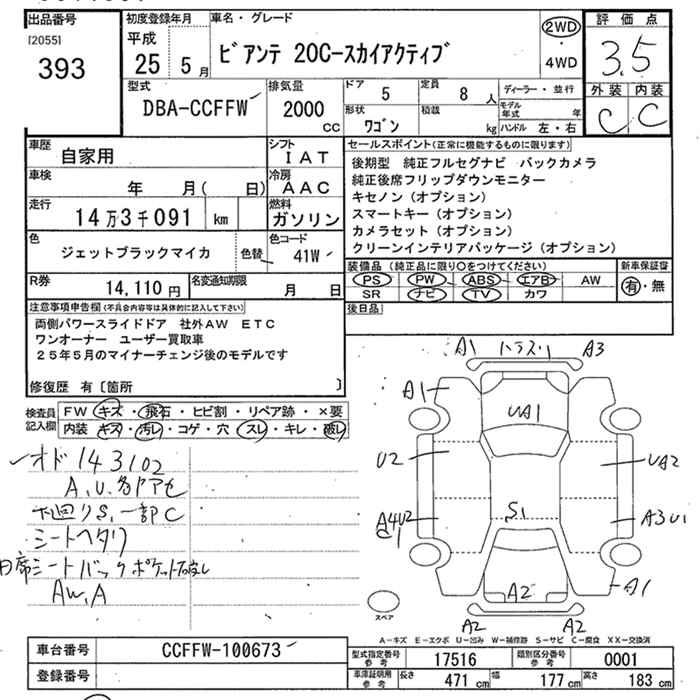 出品番号
[2055]
393
初度登録年月
平成
25 5月
車名・グレード
ビアンテ 20C-スカイアクティブ
2WD
・
4WD
評価点
3.5
外装 内装
C C
型式
DBA-CCFFW
排気量
2000
cc
ドア 5
定員 8人
形状 ワゴン
積載 kg
ディーラー・並行
モデル年式 年
ハンドル 左・右
車歴 自家用
シフト IAT
車検 年 月( 日)
冷房 AAC
走行 14万3千091 km
燃料 ガソリン
色 ジェットブラックマイカ 色替
色コード 41W
R券 14,110円
名変通知期限 月 日
セールスポイント(正常に機能するものに限ります)
後期型 純正フルセグナビ バックカメラ
純正後席フリップダウンモニター
キセノン(オプション)
スマートキー(オプション)
カメラセット(オプション)
クリーンインテリアパッケージ(オプション)
装備品(純正品に限り○をつけてください)
PS PW ABS エアB AW
SR ナビ TV カワ
新車保証書
有・無
後日品
注意事項申告欄(不具合内容等は具体的に記入して下さい)
両側パワースライドドア 社外AW ETC
ワンオーナー ユーザー買取車
25年5月のマイナーチェンジ後のモデルです
修復歴 有〔箇所 〕
検査員記入欄
FW キズ・飛石・ヒビ割・リペア跡・×要
内装 キズ・汚レ・コゲ・穴・スレ・キレ・破レ
オド143102
A,U,各ドアセ
下廻りS,一部C
シートヘタリ
席シートバックポケット
AW,A
A1 ハラス,1 A3
A1
UA1
U2
UA2
S1
A4U2
C1
A3U1
A2
A1
A2 A2
スペア
A-キズ E-エクボ U-凹み W-補修跡 S-サビ C-腐食 XX-交換済
車台番号 CCFFW-100673
登録番号
型式指定番号 参考 17516
類別区分番号 参考 0001
車庫証明用 参考 長さ 471cm 幅 177cm 高さ 183cm